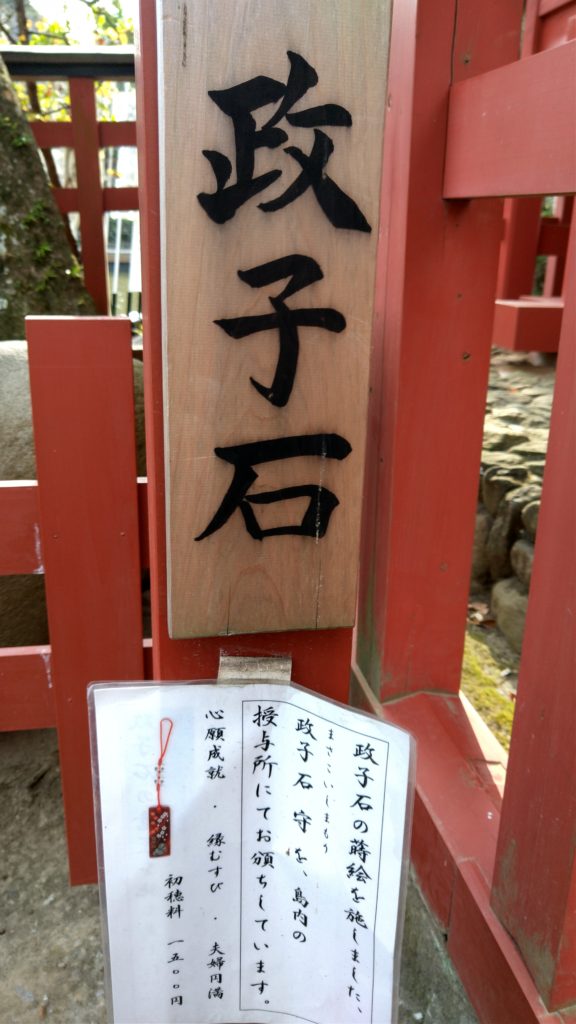 政子石
政子石の蒔絵を施しました、
まさこいしまもり
政子石 守 を、島内の
授与所にてお頒ちしています。
心願成就 ・ 縁むすび ・ 夫婦円満
初穂料 一五〇〇円